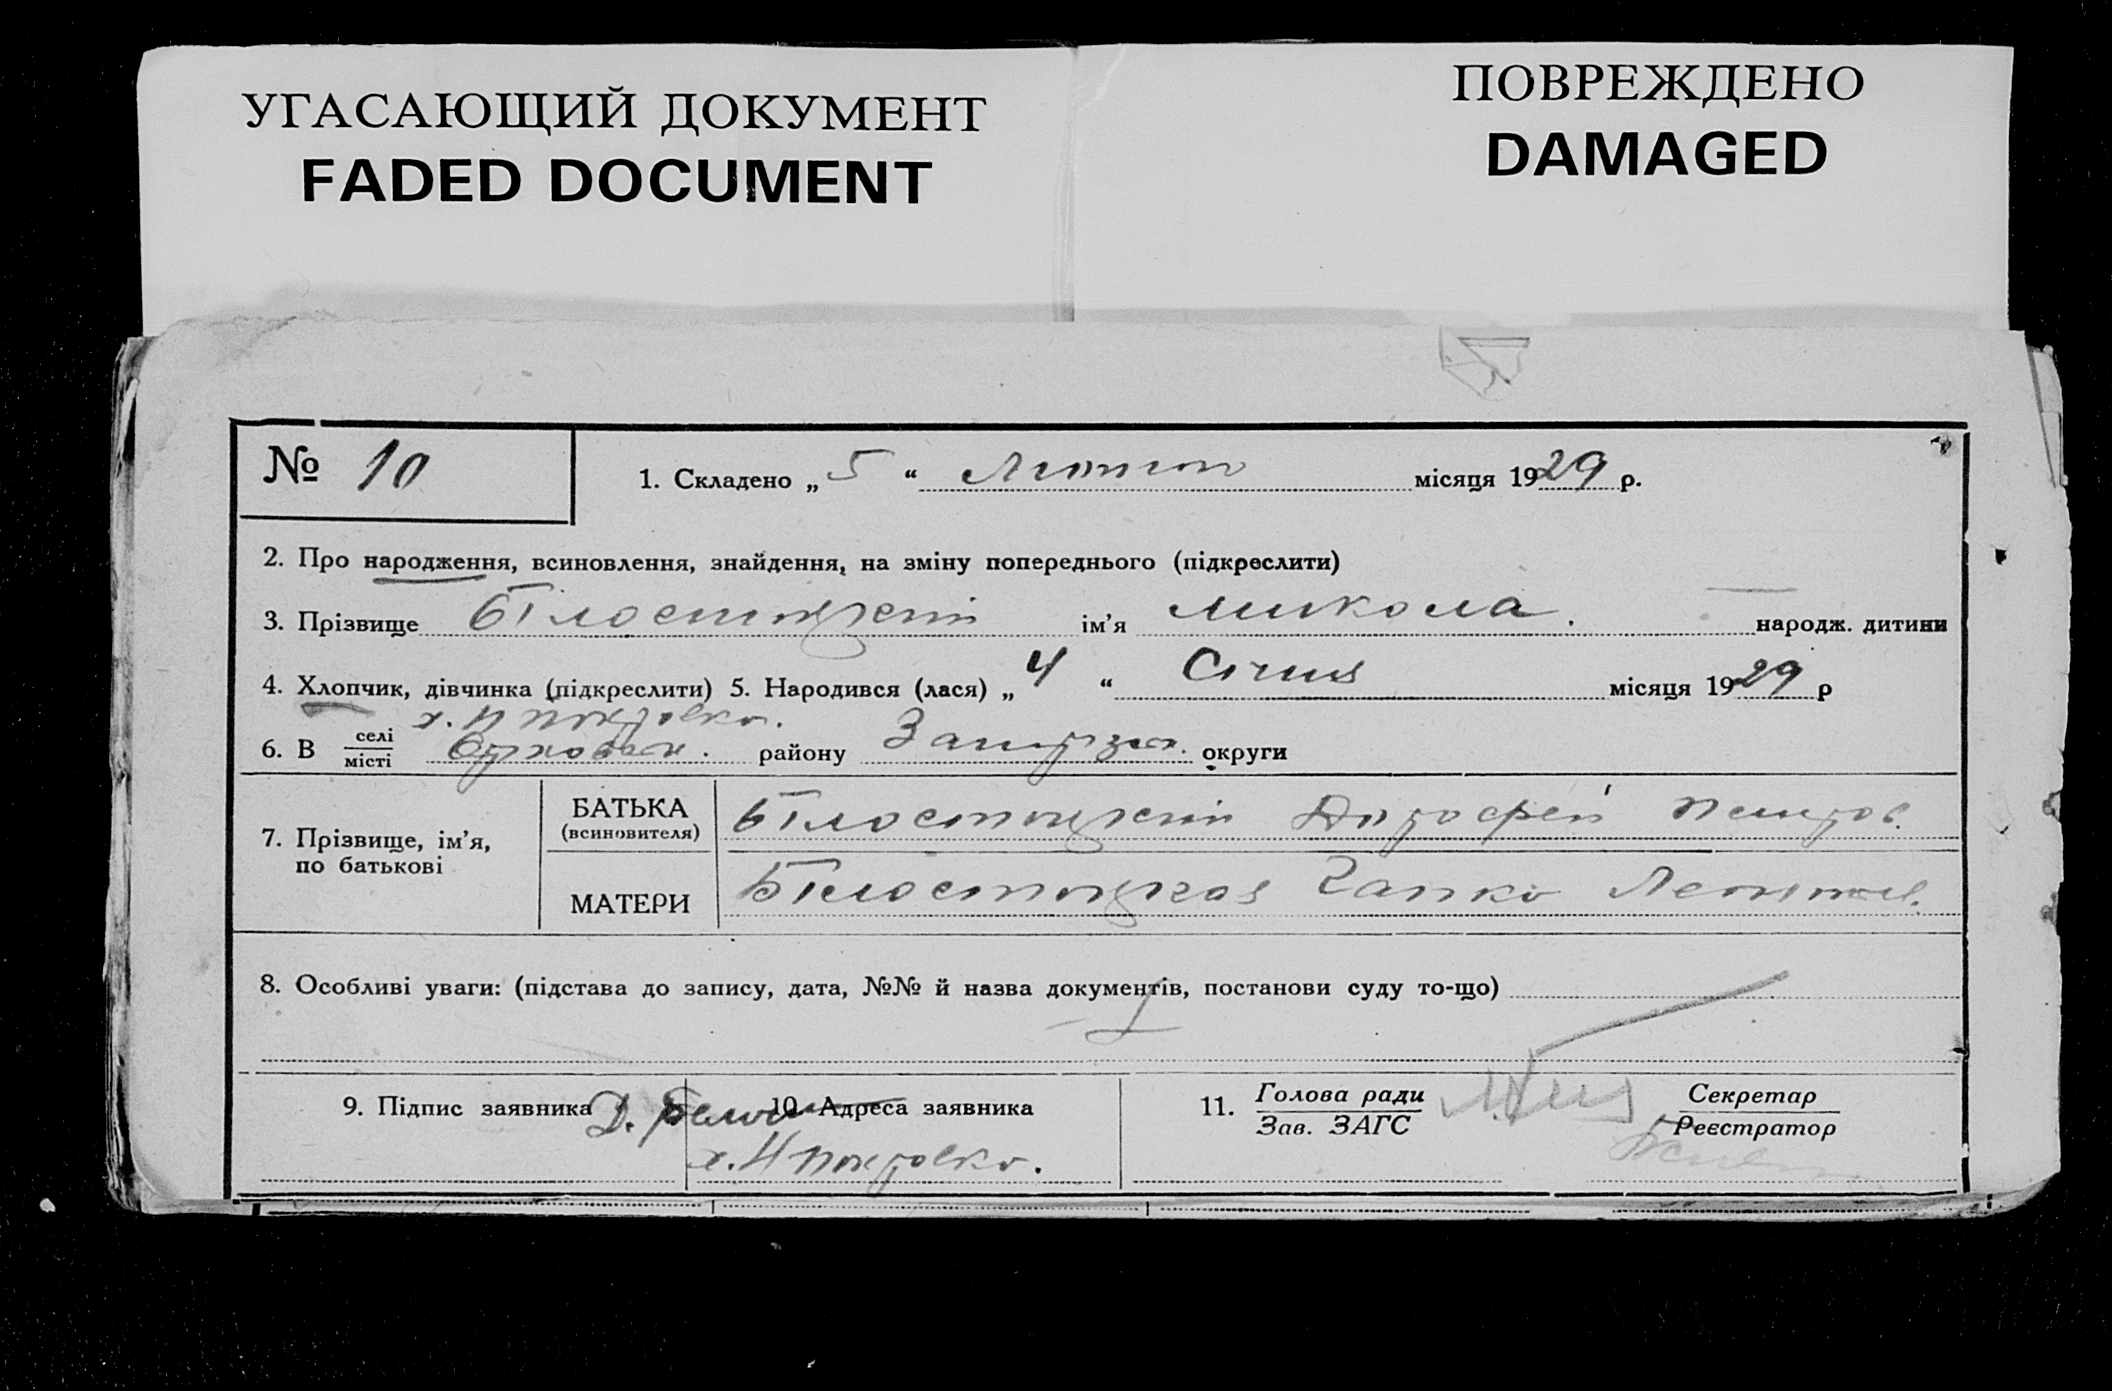 УГАСАЮЩИЙ ДОКУМЕНТ
FADED DOCUMENT
ПОВРЕЖДЕНО
DAMAGED
№ 10
1. Складено „ 5 “ Лютого місяця 1929 р.
2. Про народження, всиновлення, знайдення, на зміну попереднього (підкреслити)
3. Прізвище Білостоцкий ім’я Микола. народж. дитини
4. Хлопчик, дівчинка (підкреслити) 5. Народився (лася) „ 4 “ Січня місяця 1929 р
х. Н Покровка.
6. В селі
місті Оріхівськ. району Запоріз. округи
7. Прізвище, ім’я,
по батькові
БАТЬКА
(всиновителя)
Білостоцкий Дорофей Петров.
МАТЕРИ
Білостоцкая Леонтіев.
8. Особливі уваги: (підстава до запису, дата, №№ й назва документів, постанови суду то-що)
9. Підпис заявника Д. Бело
10 Адреса заявника
х. Н Покровка.
11. Голова ради
Зав. ЗАГС
Секретар
Реєстратор